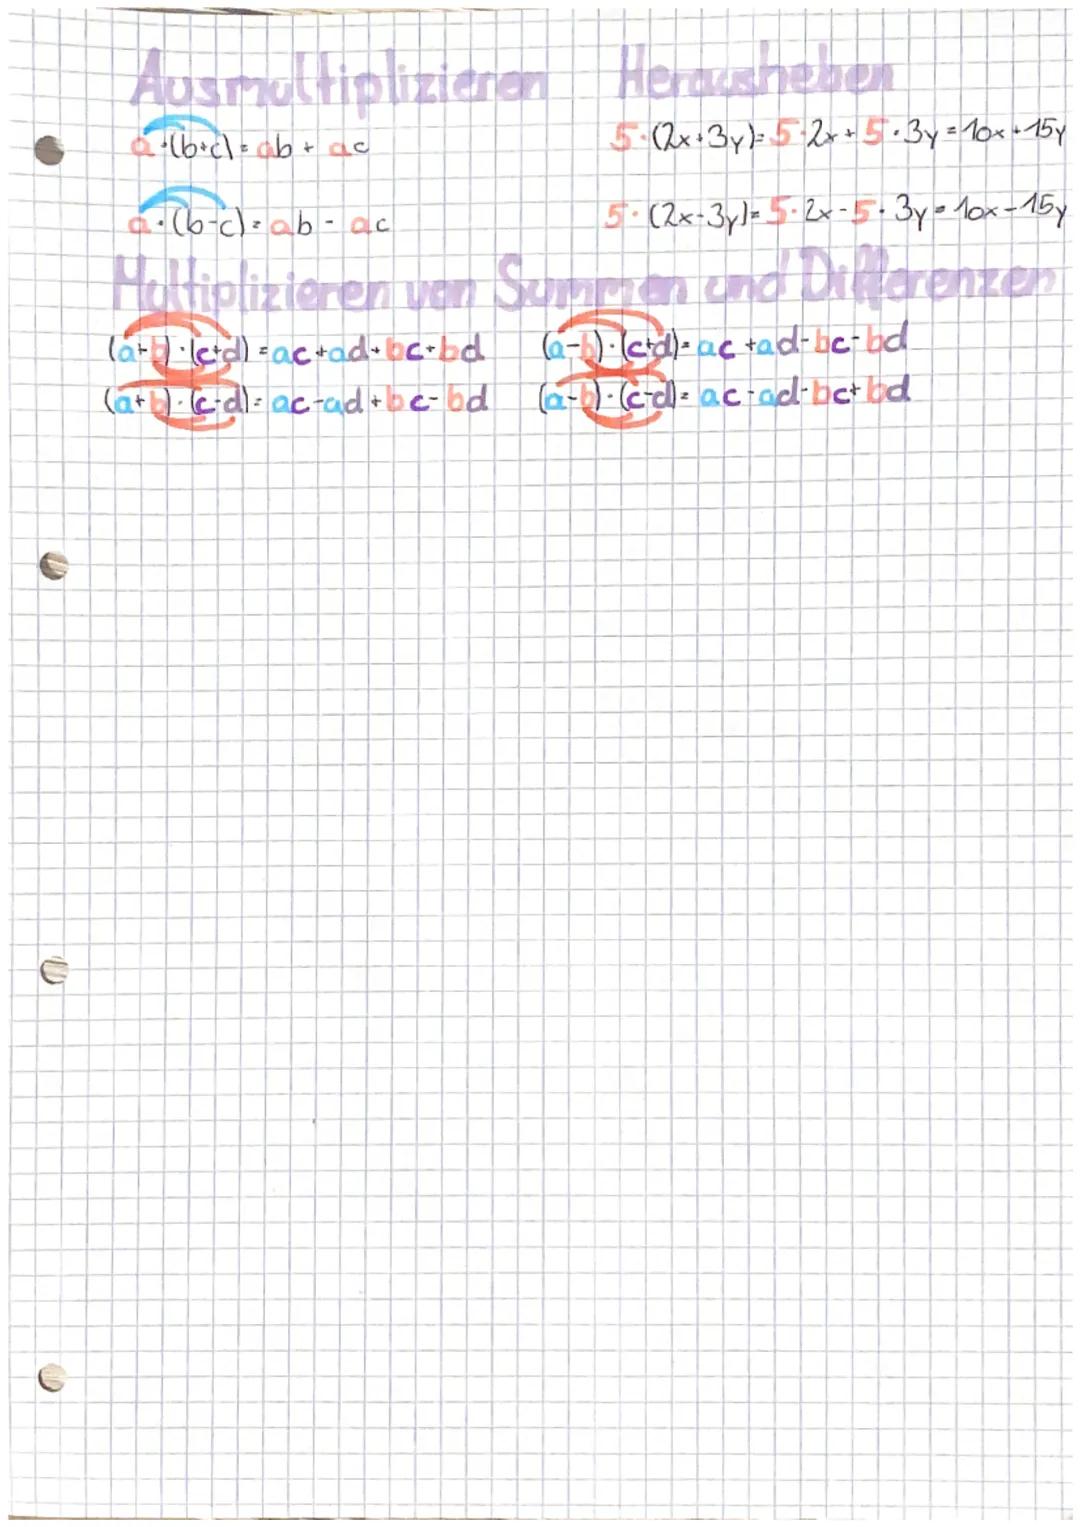 Ausmultiplizieren Herausheben
a·(b+c)=ab + ac 5·(2x+3y)=5·2x+5·3y=10x+15y
a·(b-c)=ab - ac 5·(2x-3y)=5·2x-5·3y=10x-15y
Multiplizieren von Summen und Differenzen
(a+b)·(c+d)=ac+ad+bc+bd (a-b)·(c+d)=ac+ad-bc-bd
(a+b)·(c-d)=ac-ad+bc-bd (a-b)·(c-d)=ac-ad-bc+bd